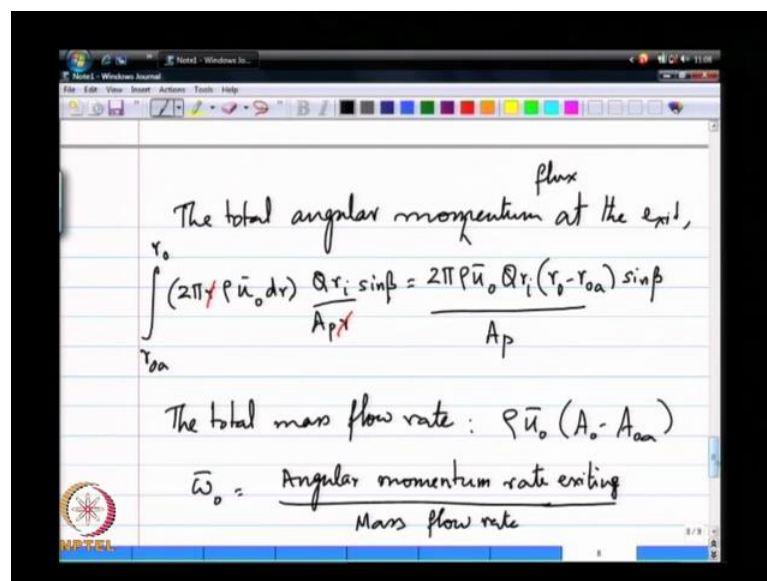 Note1 - Windows Jo...
11:08
Note1 - Windows Journal
File Edit View Insert Actions Tools Help
flux
The total angular momentum at the exit,
∫_{r_{oa}}^{r_o} (2πr ρ ū_o dr) Q r_i sinβ / A_p r = 2πρū_o Q r_i (r_o - r_{oa}) sinβ / A_p
The total mass flow rate : ρ ū_o (A_o - A_{oa})
ω̄_o = Angular momentum rate exiting / Mass flow rate
NPTEL
8